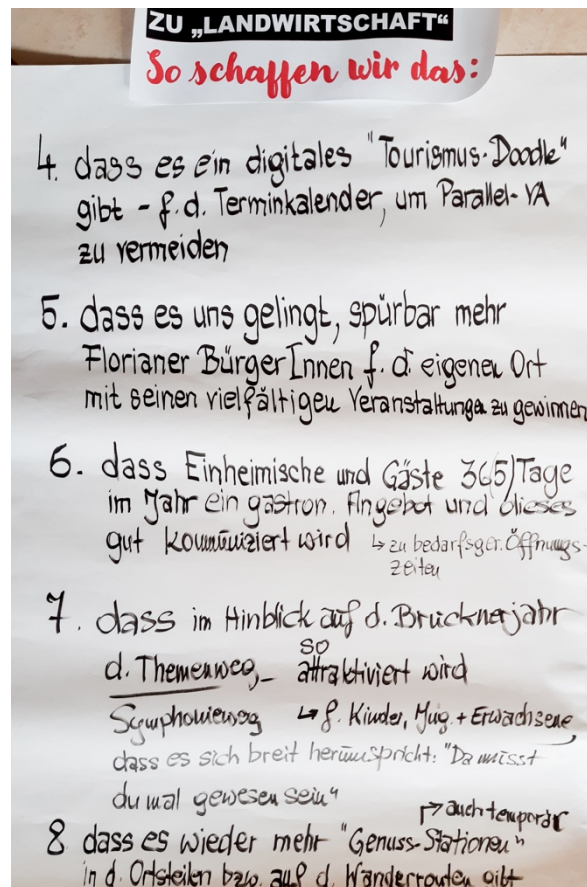 ZU „LANDWIRTSCHAFT“
So schaffen wir das:
4. dass es ein digitales "Tourismus-Doodle"
gibt - f. d. Terminkalender, um Parallel-VA
zu vermeiden
5. dass es uns gelingt, spürbar mehr
Florianer BürgerInnen f. d. eigenen Ort
mit seinen vielfältigen Veranstaltungen zu gewinnen
6. dass Einheimische und Gäste 365 Tage
im Jahr ein gastron. Angebot und dieses
gut kommuniziert wird ↳ zu bedarfsger. Öffnungs-
zeiten
7. dass im Hinblick auf d. Brucknerjahr
d. Themenweg, so attraktiviert wird
Symphonieweg ↳ f. Kinder, Jug. + Erwachsene,
dass es sich breit herumspricht: "Da musst
du mal gewesen sein"
↱ auch temporär
8 dass es wieder mehr "Genuss-Stationen"
in d. Ortsteilen bzw. auf d. Wanderrouten gibt